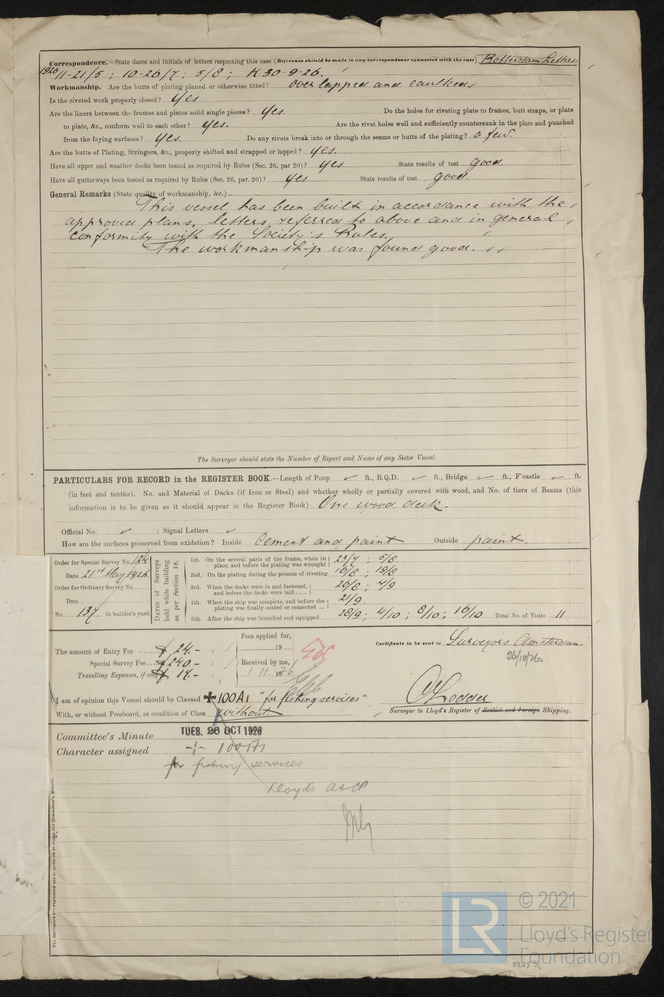 Correspondence.—State dates and initials of letters respecting this case (Reference should be made to any correspondence connected with the case) Rotterdam Letters
1926 11-21/5 ; 10-26/7 ; 5/8 ; K 30-9-26.
Workmanship. Are the butts of plating planed or otherwise fitted? overlapped and caulked
Is the riveted work properly closed? Yes
Are the liners between the frames and plates solid single pieces? Yes. Do the holes for riveting plate to frames, butt straps, or plate
to plate, &c., conform well to each other? Yes. Are the rivet holes well and sufficiently countersunk in the plate and punched
from the faying surfaces? Yes. Do any rivets break into or through the seams or butts of the plating? a few.
Are the butts of Plating, Stringers, &c., properly shifted and strapped or lapped? Yes.
Have all upper and weather decks been tested as required by Rules (Sec. 26, par 20)? Yes State results of test good.
Have all gutterways been tested as required by Rules (Sec. 26, par. 20)? Yes State results of test good.
General Remarks (State quality of workmanship, &c.)
This vessel has been built in accordance with the
approved plans, letters referred to above and in general
conformity with the Society's Rules.
The workmanship was found good.
The Surveyor should state the Number of Report and Name of any Sister Vessel.
PARTICULARS FOR RECORD in the REGISTER BOOK.—Length of Poop ✓ ft., R.Q.D. ✓ ft., Bridge ✓ ft., F'castle ✓ ft.
(in feet and tenths). No. and Material of Decks (if Iron or Steel) and whether wholly or partially covered with wood, and No. of tiers of Beams (this
information is to be given as it should appear in the Register Book) One wood deck.
Official No. ✓ ; Signal Letters ✓
How are the surfaces preserved from oxidation? Inside Cement and paint Outside paint.
Order for Special Survey No. 134
Date 21st May 1926.
Order for Ordinary Survey No.
Date
No. 137 in builder's yard.
Dates of Surveys held while building as per Section 18.
1st. On the several parts of the frame, when in place, and before the plating was wrought 22/7 ; 5/8
2nd. On the plating during the process of riveting 16/8 ; 19/8
3rd. When the beams were in and fastened, and before the decks were laid 28/8 ; 4/9
4th. When the ship was complete, and before the plating was finally coated or cemented 21/9.
5th. After the ship was launched and equipped 28/9 ; 4/10 ; 8/10 ; 16/10 Total No. of Visits 11
The amount of Entry Fee £ 24.-
Special Survey Fee £ 240.-
Travelling Expenses, if any £ 14.-
Fees applied for,
19
Received by me,
1.11.26
Certificate to be sent to Surveyors Amsterdam.
26/10/26
I am of opinion this Vessel should be Classed ✠100A1 "for fishing services"
With, or without Freeboard, as condition of Class without
Surveyor to Lloyd's Register of British and Foreign Shipping.
Committee's Minute TUES. 26 OCT 1926
Character assigned + 100A1
for fishing services
Lloyd's A&CP
LR
© 2021
Lloyd's Register
Foundation